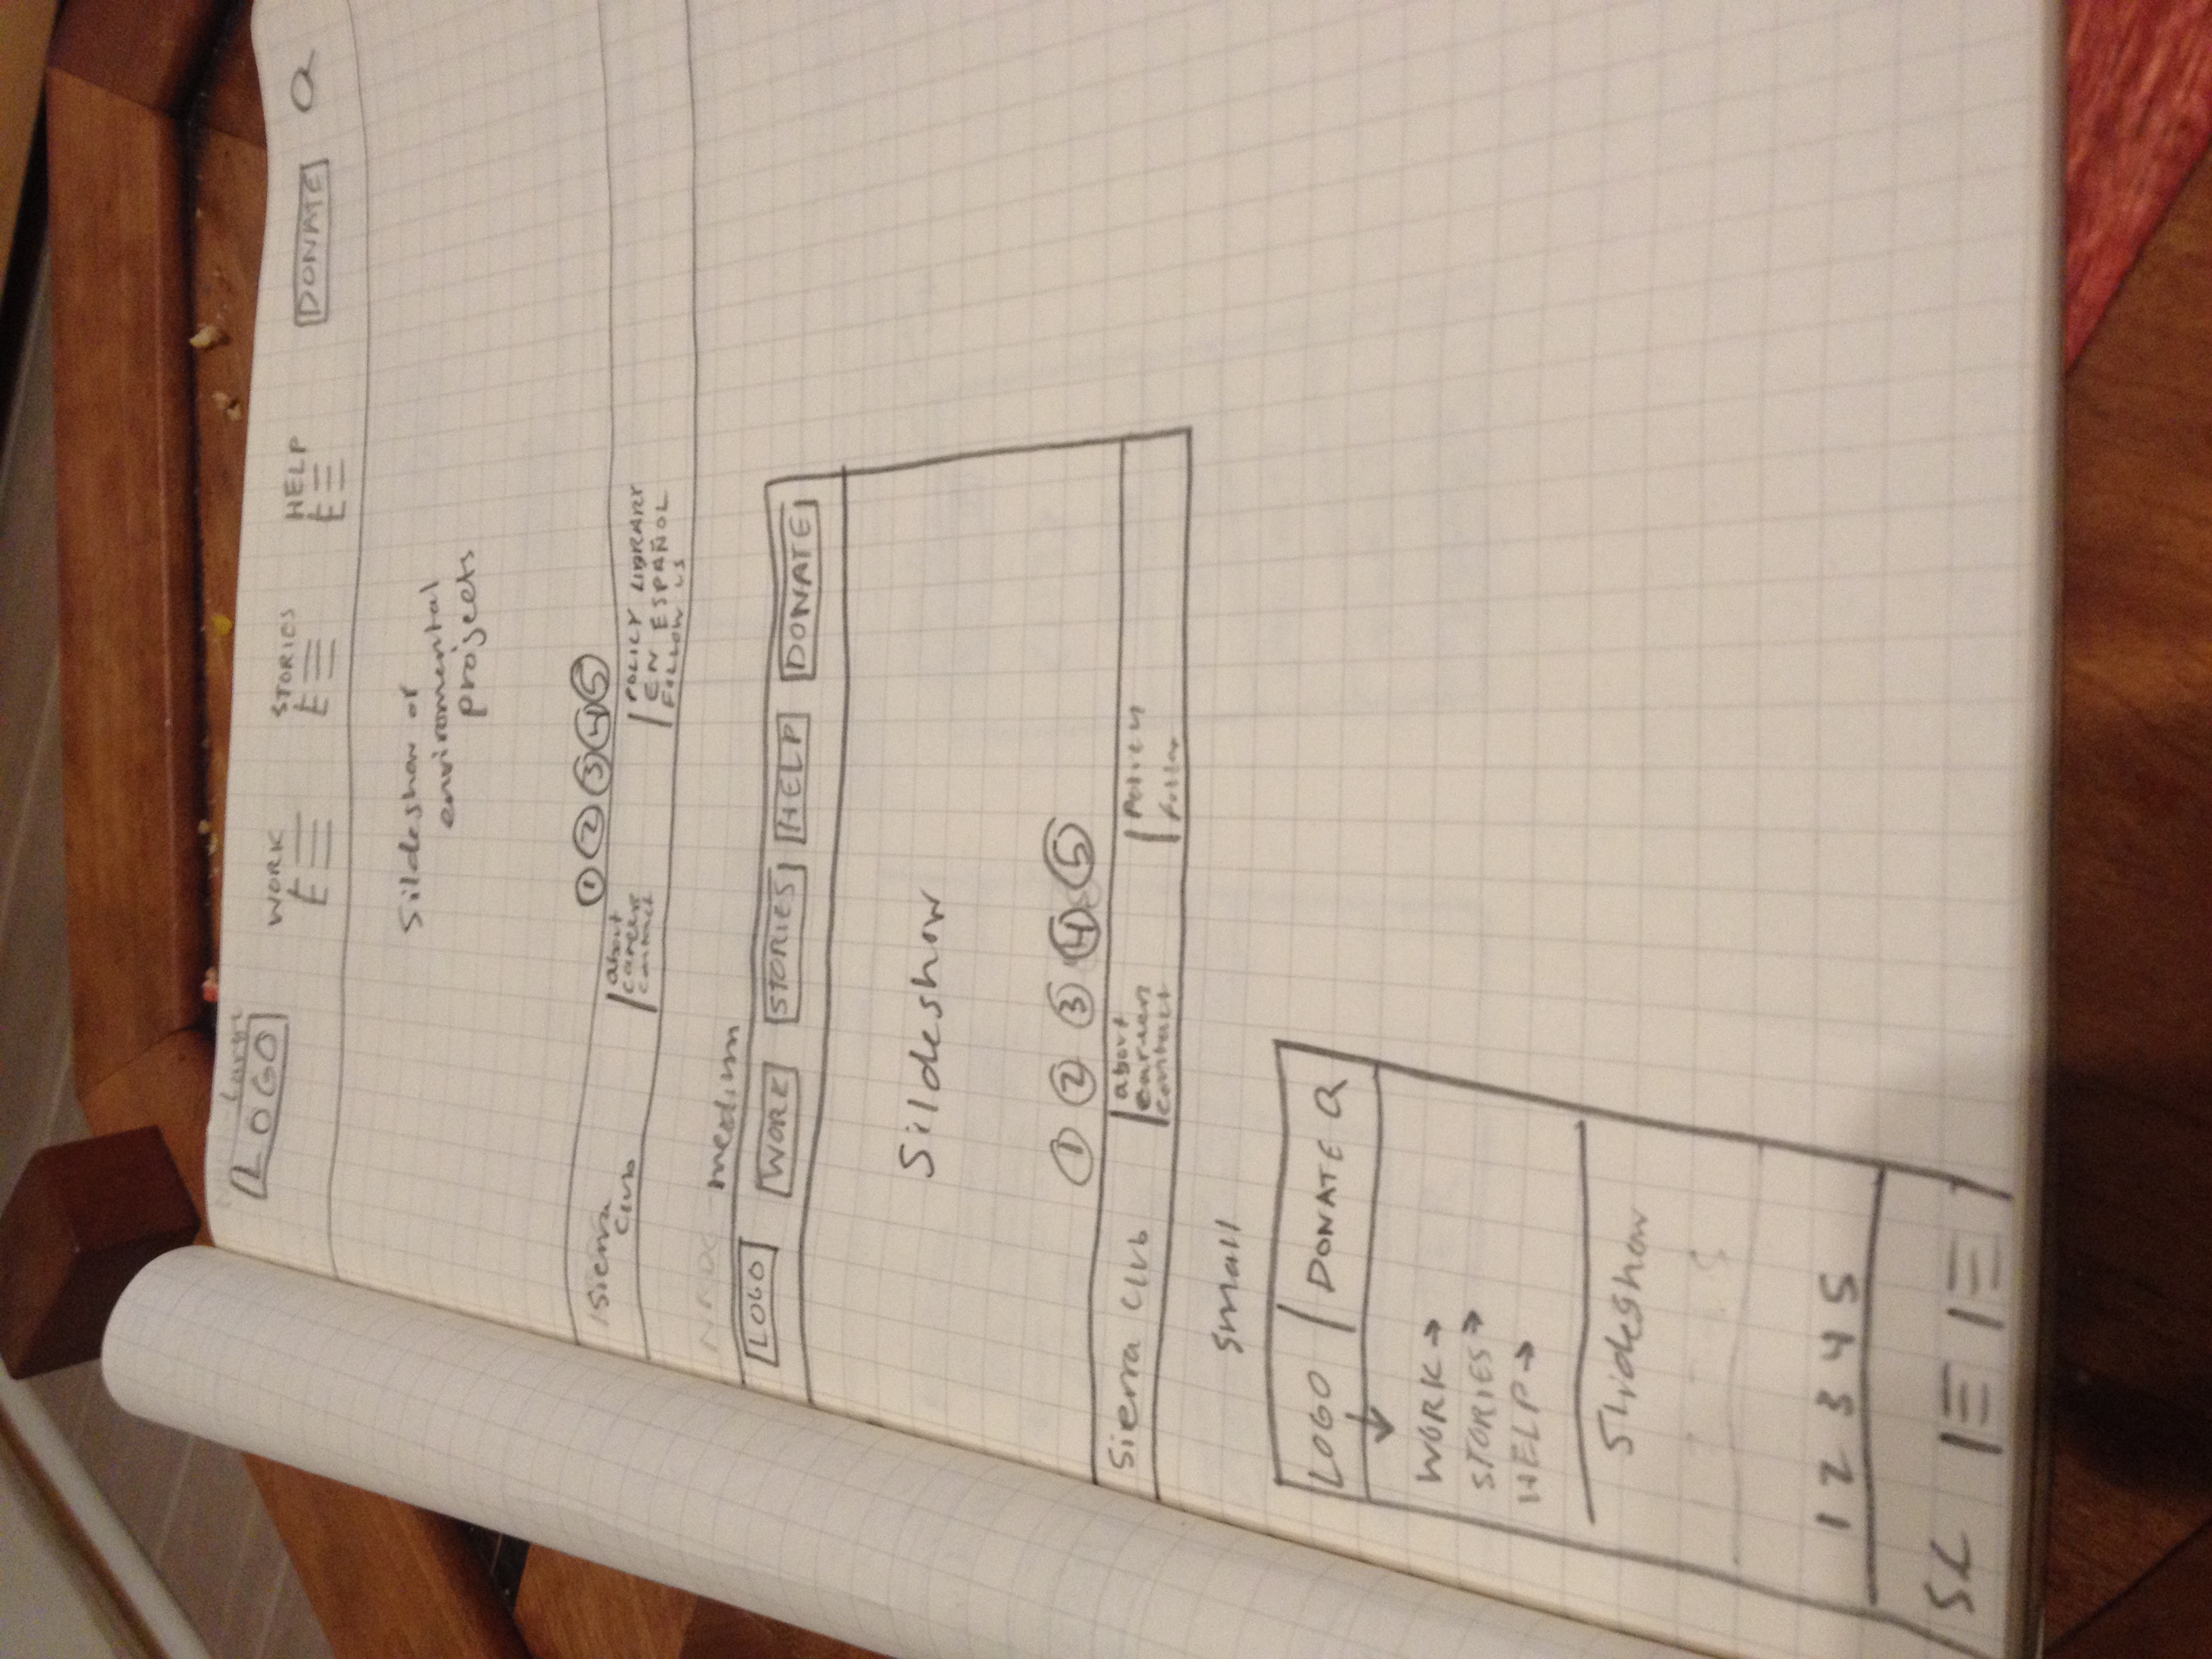 Large
LOGO
WORK
STORIES
HELP
DONATE
Sildeshow of
enviromental
projects
1 2 3 4 5
Sierra
Club
about
careers
contact
POLICY LIBRARY
EN ESPAÑOL
FOLLOW US
NRDC medium
LOGO WORK STORIES HELP DONATE
Sildeshow
1 2 3 4 5
Sierra Club
about
careers
contact
Policy
follow
small
LOGO DONATE
WORK →
STORIES →
HELP →
Slideshow
1 2 3 4 5
SC